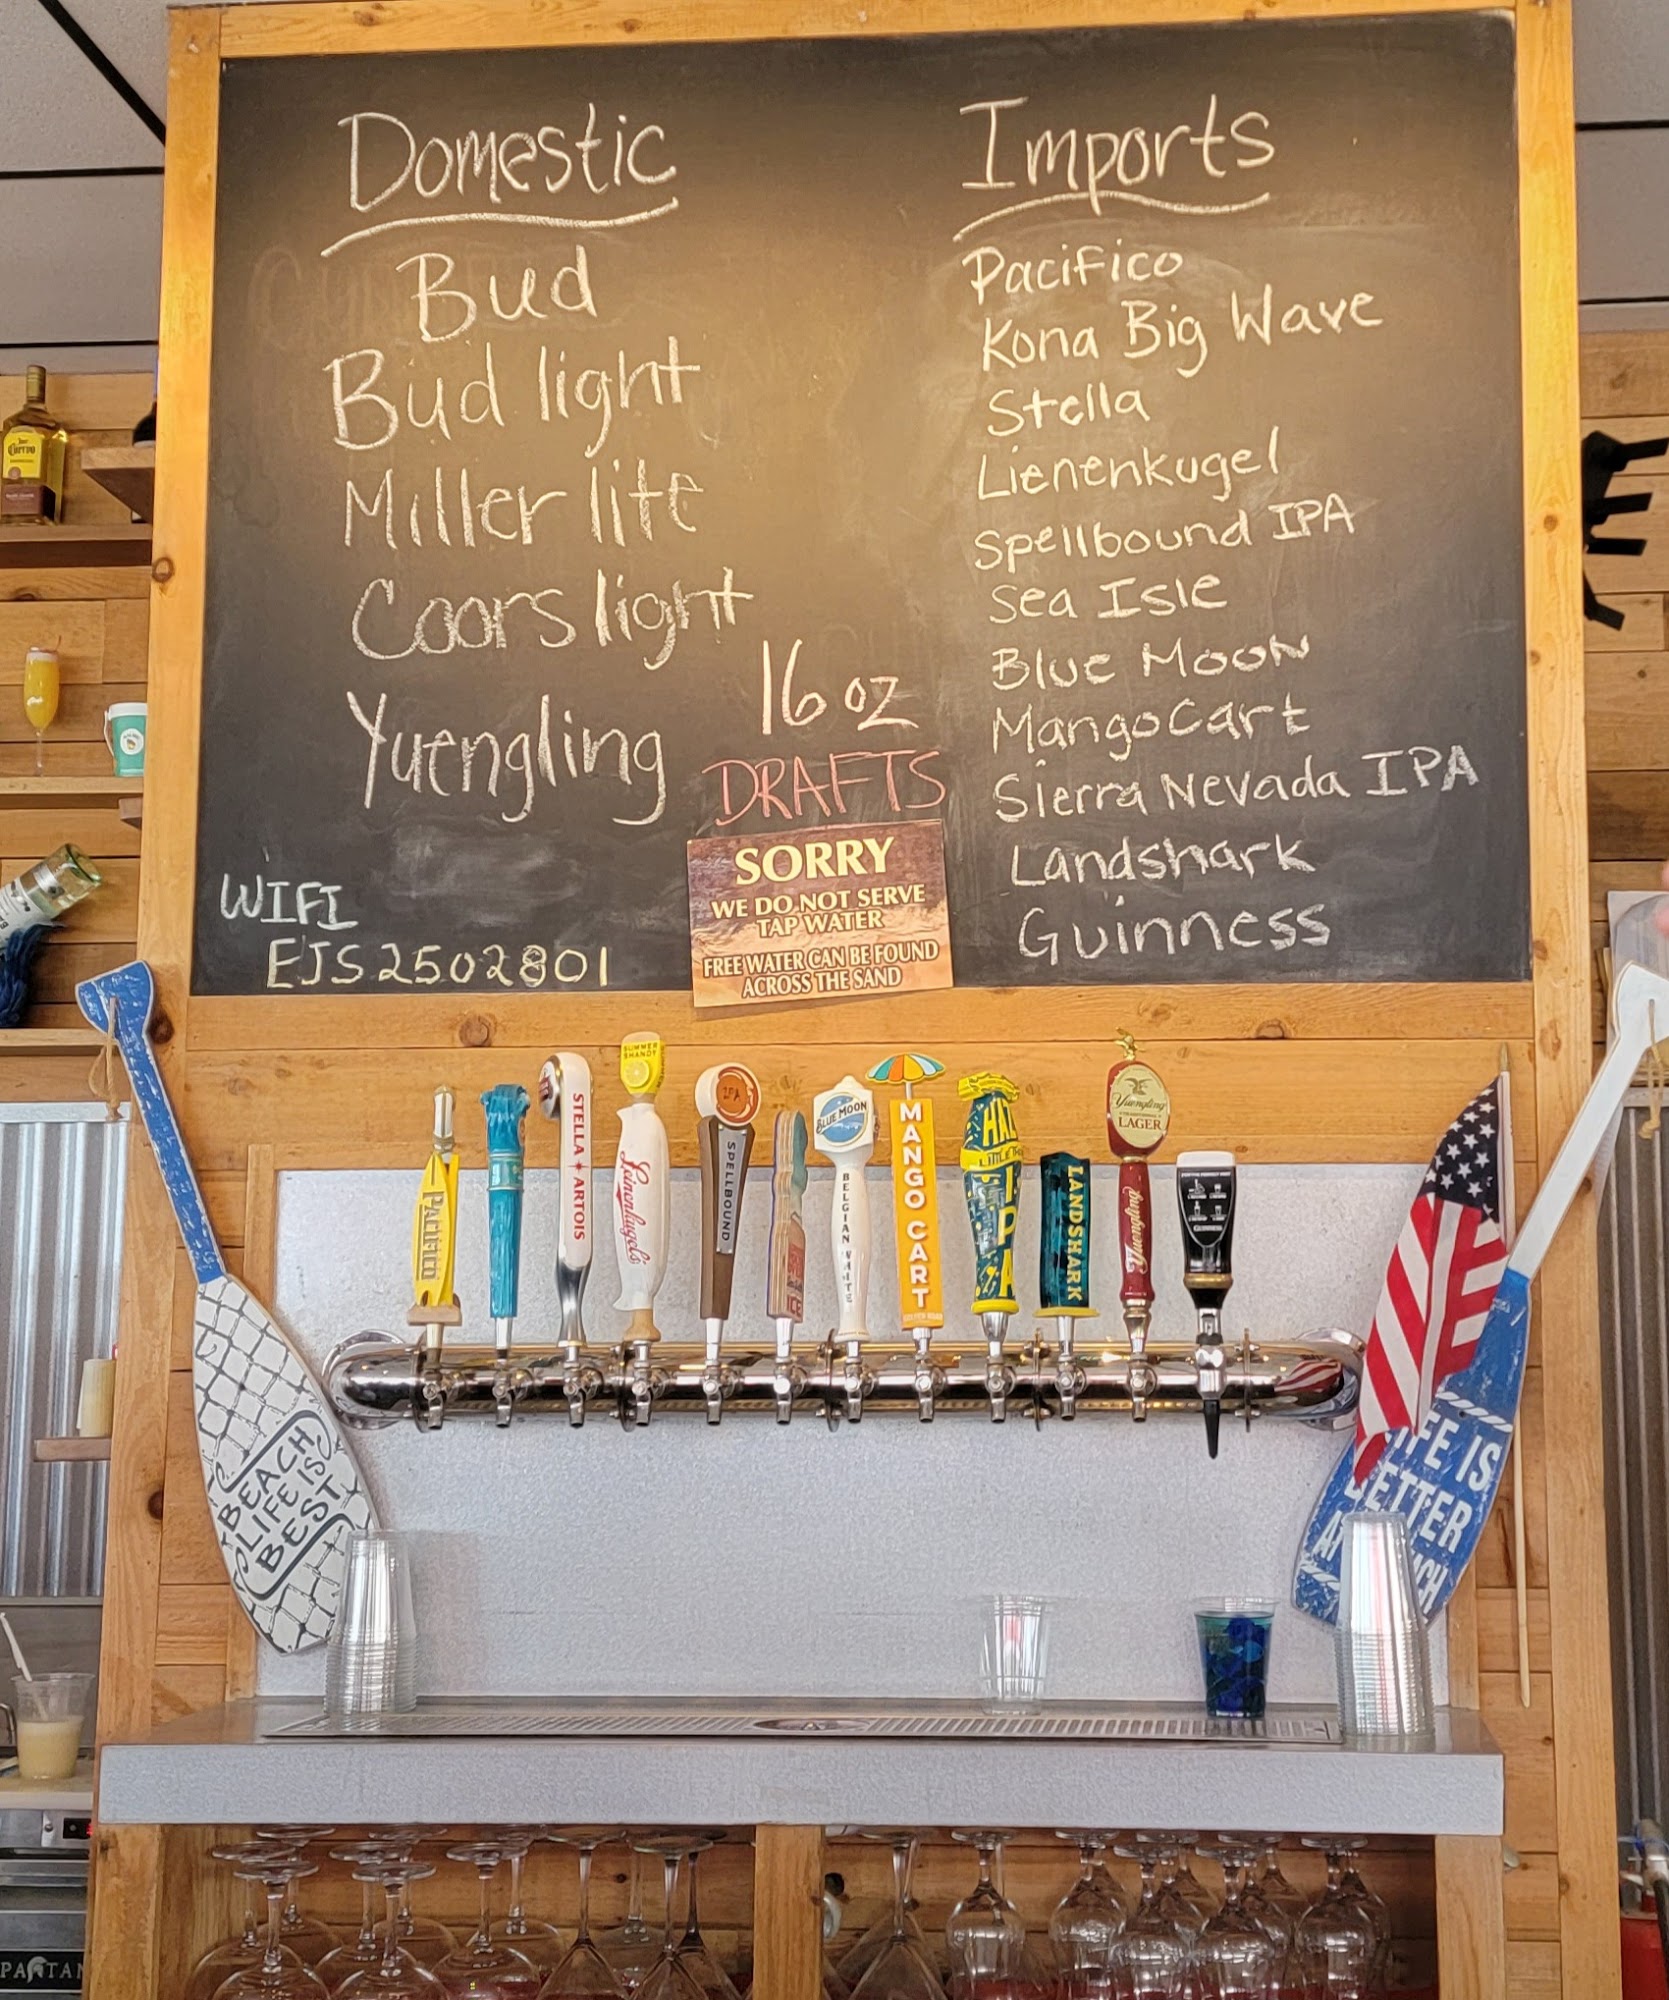 Domestic
Bud
Bud light
Miller lite
Coors light
Yuengling
16 oz
DRAFTS
Imports
Pacifico
Kona Big Wave
Stella
Lienenkugel
Spellbound IPA
Sea Isle
Blue Moon
Mango Cart
Sierra Nevada IPA
Landshark
Guinness
WIFI
EJS2502801
SORRY
WE DO NOT SERVE
TAP WATER
FREE WATER CAN BE FOUND
ACROSS THE SAND
Cuervo
PACIFICO
STELLA ARTOIS
SUMMER
SHANDY
Leinenkugel's
IPA
SPELLBOUND
ICE
BLUE MOON
BELGIAN WHITE
MANGO CART
LITTLE
IPA
LANDSHARK
Yuengling
LAGER
Yuengling
GUINNESS
BEACH
LIFE IS
BEST
LIFE IS
BETTER